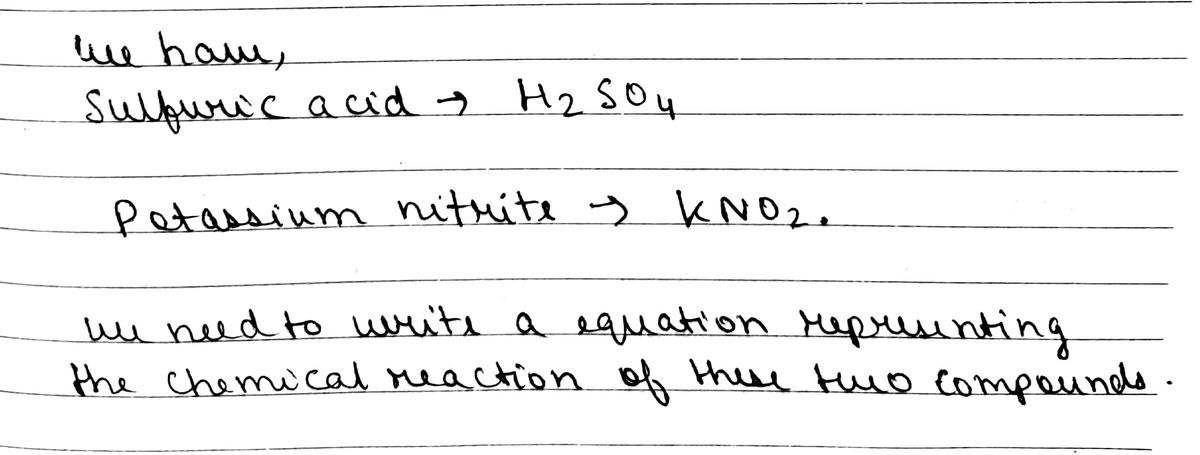 We have,
Sulfuric acid → H2SO4
Potassium nitrite → KNO2.
we need to write a equation representing
the chemical reaction of these two compounds.